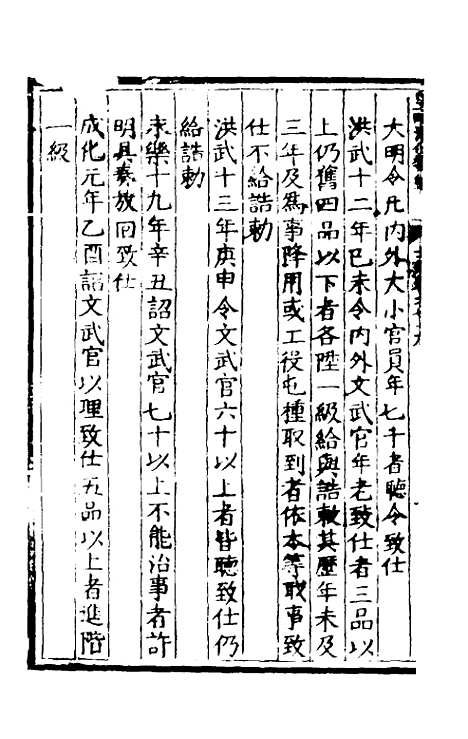 大明令凡內外大小官員年七十者聽令致仕
洪武十二年巳未令內外文武官年老致仕者三品以
上仍舊四品以下者各陞一級給與誥敕其歷年未及
三年及爲事降用或工役屯種取到者依本等職事致
仕不給誥勅
洪武十三年庚申令文武官六十以上者皆聽致仕仍
給誥勅
永樂十九年辛丑詔文武官七十以上不能治事者許
明具奏放回致仕
成化元年乙酉詔文武官以理致仕五品以上者進階
一級